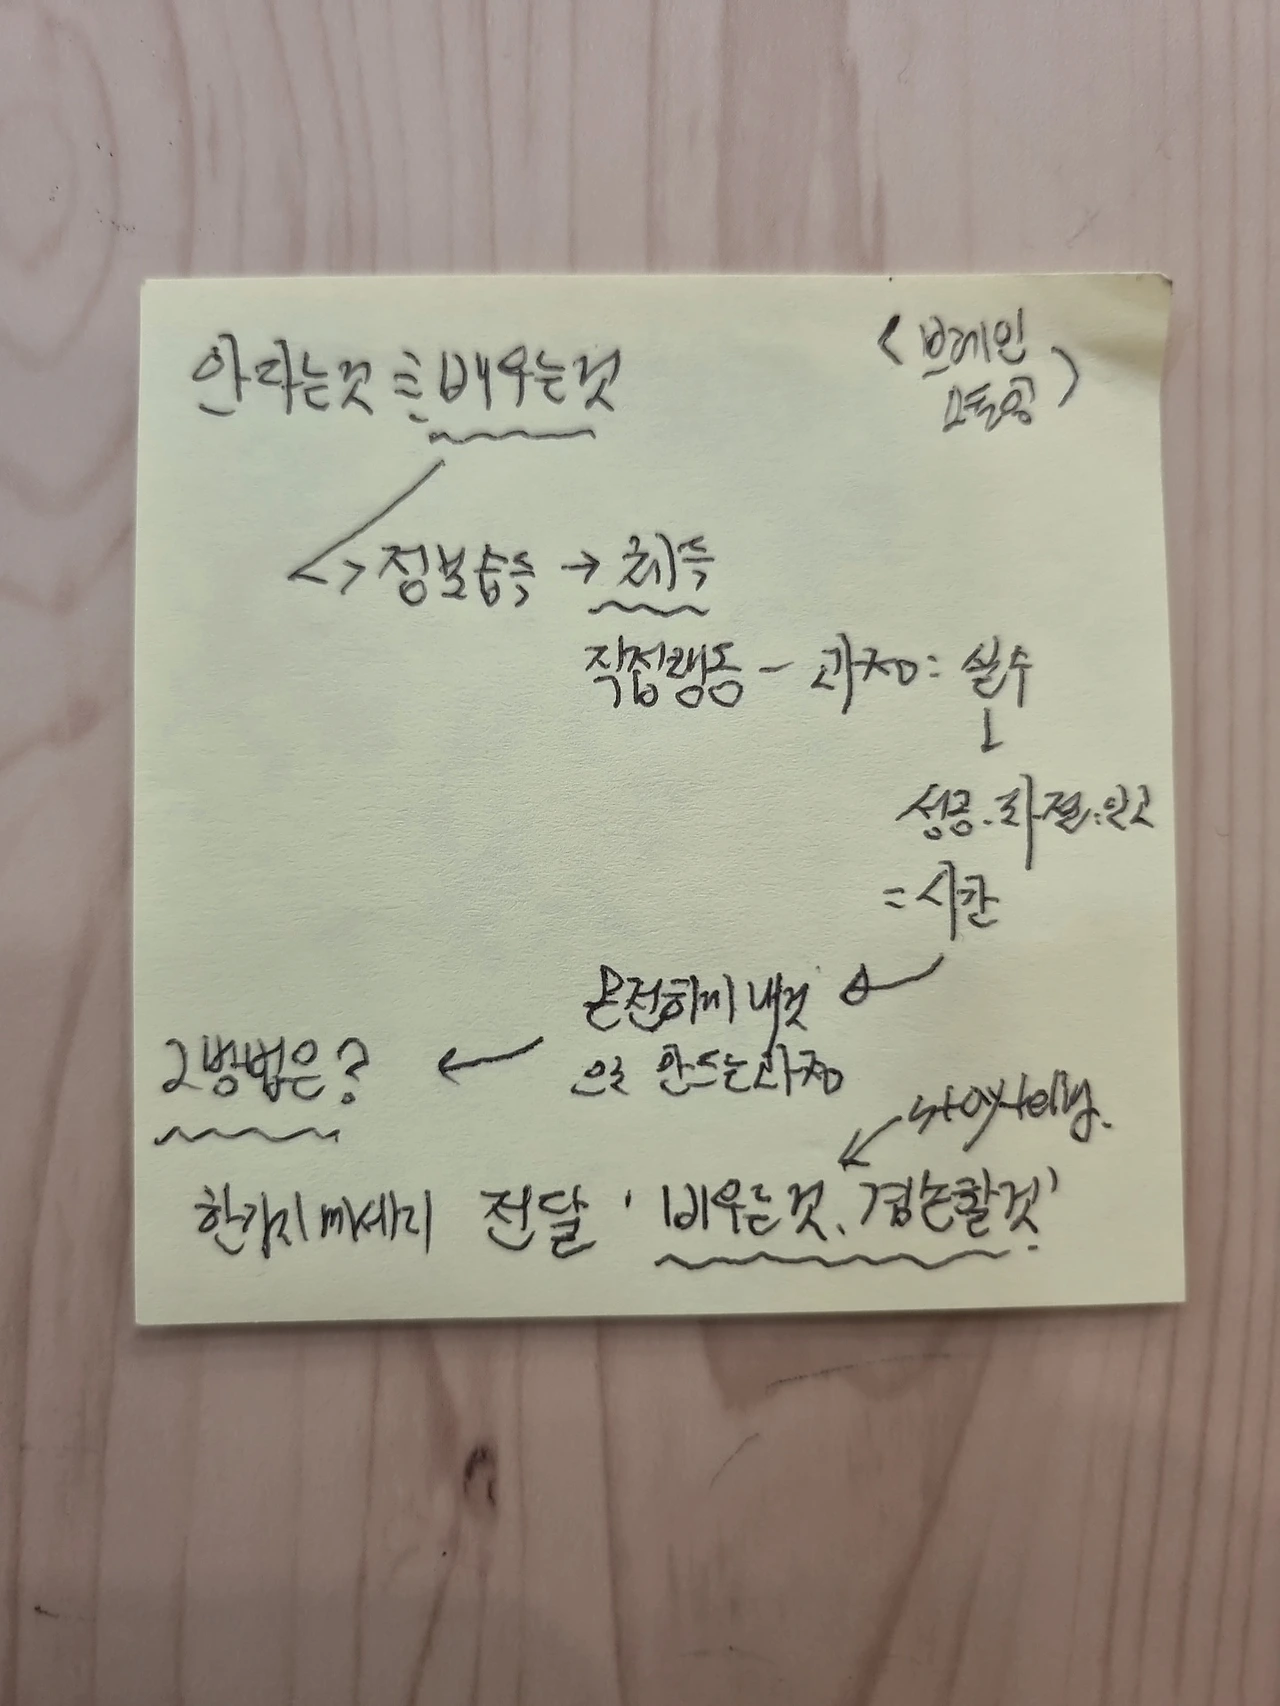 안다는것 ≡ 배우는것
< 브레인
모듈공 >
<> 정보습득 → 취득
직접행동 - 과정 = 실수
↓
성공.좌절.인고
= 시간
온전하게 내것
으로 만드는 과정
그방법은?
storytellg.
한가지 메세지 전달 '비우는것, 겸손할것'